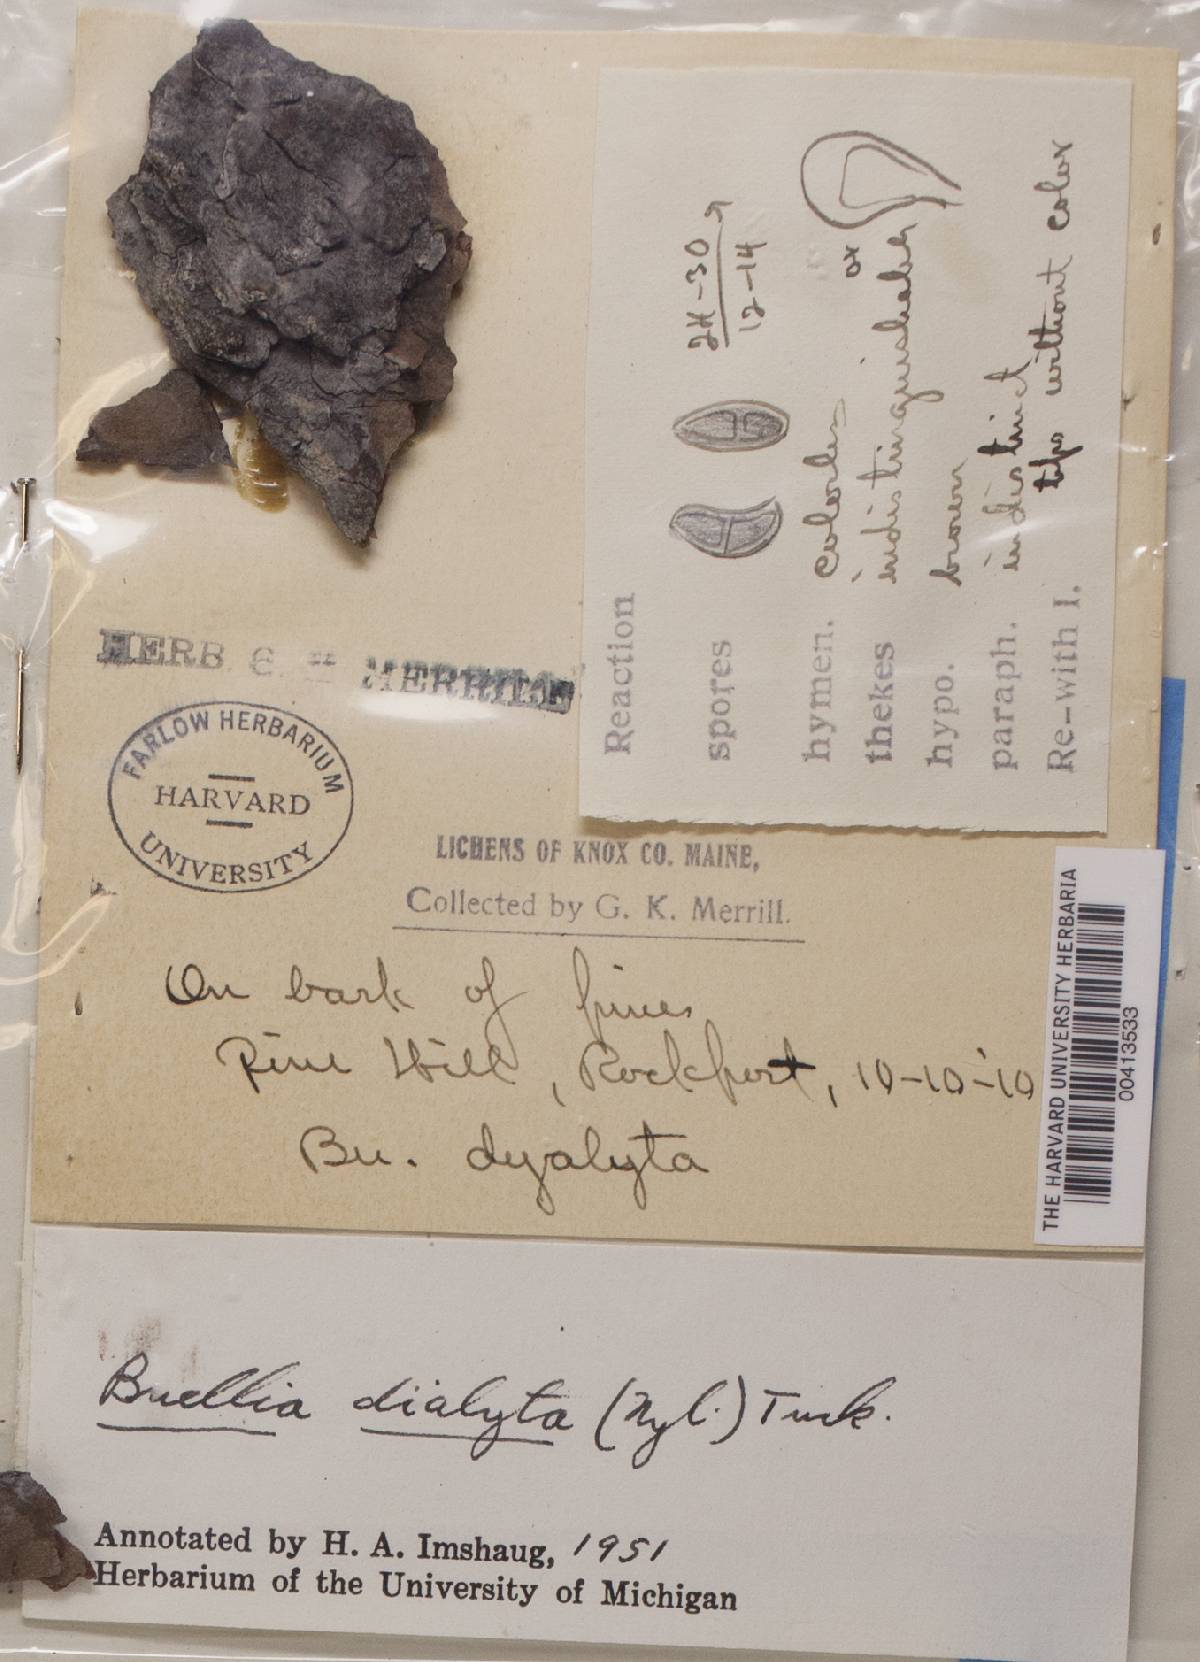 HERB G. K. MERRILL
FARLOW HERBARIUM
HARVARD
UNIVERSITY
Reaction
spores 24-30
12-14
hymen. colorless
thekes indistinguishable or
hypo. brown
paraph. indistinct
Re-with I. tips without color
LICHENS OF KNOX CO. MAINE,
Collected by G. K. Merrill.
On bark of pines
Pine Hill, Rockport, 10-10-10
Bu. dyalyta
THE HARVARD UNIVERSITY HERBARIA
00413533
Buellia dialyta (Nyl.) Tuck.
Annotated by H. A. Imshaug, 1951
Herbarium of the University of Michigan